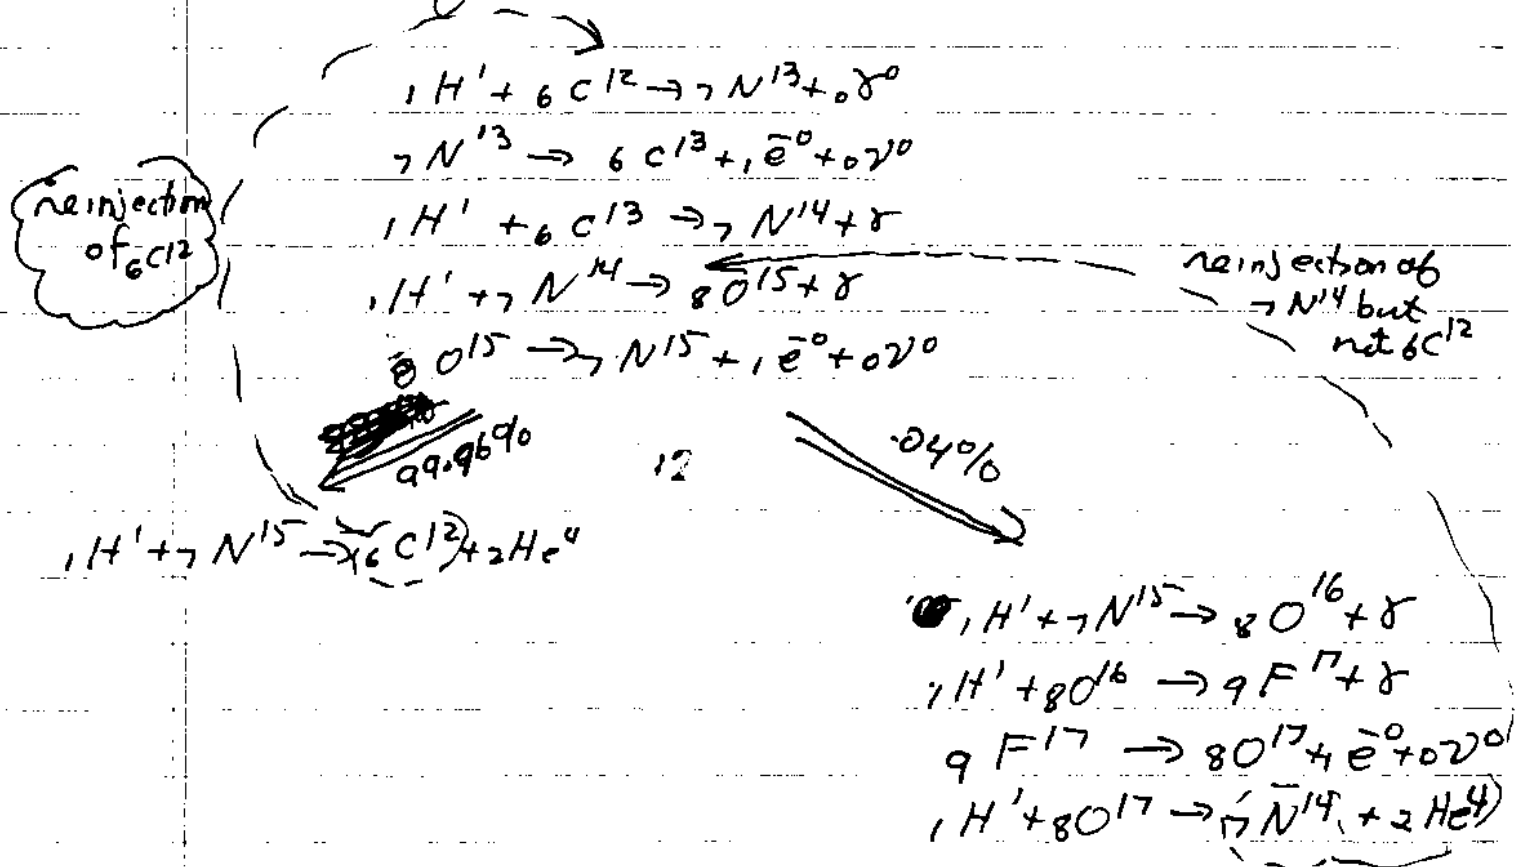 ₁H¹ + ₆C¹² → ₇N¹³ + ₀γ⁰
₇N¹³ → ₆C¹³ + ₁e̅⁰ + ₀ν⁰
reinjection
of ₆C12
₁H¹ + ₆C¹³ → ₇N¹⁴ + γ
₁H¹ + ₇N¹⁴ → ₈O¹⁵ + γ
reinjection of
₇N¹⁴ but
not ₆C¹²
₈O¹⁵ → ₇N¹⁵ + ₁e̅⁰ + ₀ν⁰
99.96%
12
.04%
₁H¹ + ₇N¹⁵ → (₆C¹²) + ₂He⁴
₁H¹ + ₇N¹⁵ → ₈O¹⁶ + γ
₁H¹ + ₈O¹⁶ → ₉F¹⁷ + γ
₉F¹⁷ → ₈O¹⁷ + ₁e̅⁰ + ₀ν⁰
₁H¹ + ₈O¹⁷ → ₇N¹⁴ + ₂He⁴)